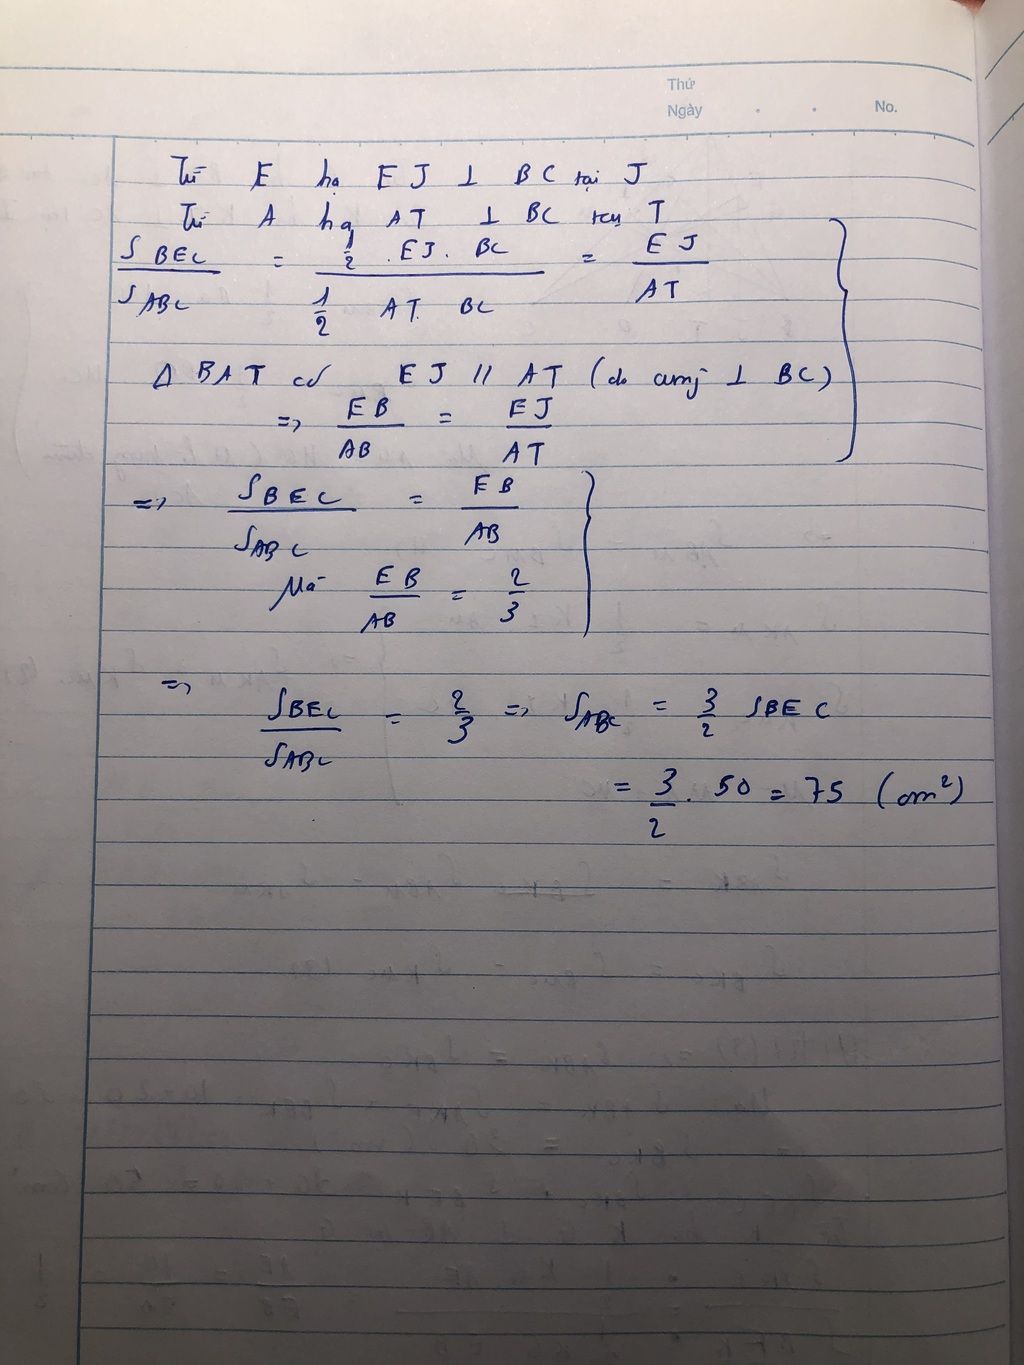 Thứ
Ngày . . No.
Từ E hạ EJ ⊥ BC tại J
Từ A hạ AT ⊥ BC tại T
S BEC / S ABC = 1/2 . EJ . BC / 1/2 AT . BC = EJ / AT
Δ BAT có EJ // AT (do cùng ⊥ BC)
=> EB / AB = EJ / AT
=> S BEC / S ABC = EB / AB
Mà EB / AB = 2/3
=> S BEC / S ABC = 2/3 => S ABC = 3/2 S BEC
= 3/2 . 50 = 75 (cm²)